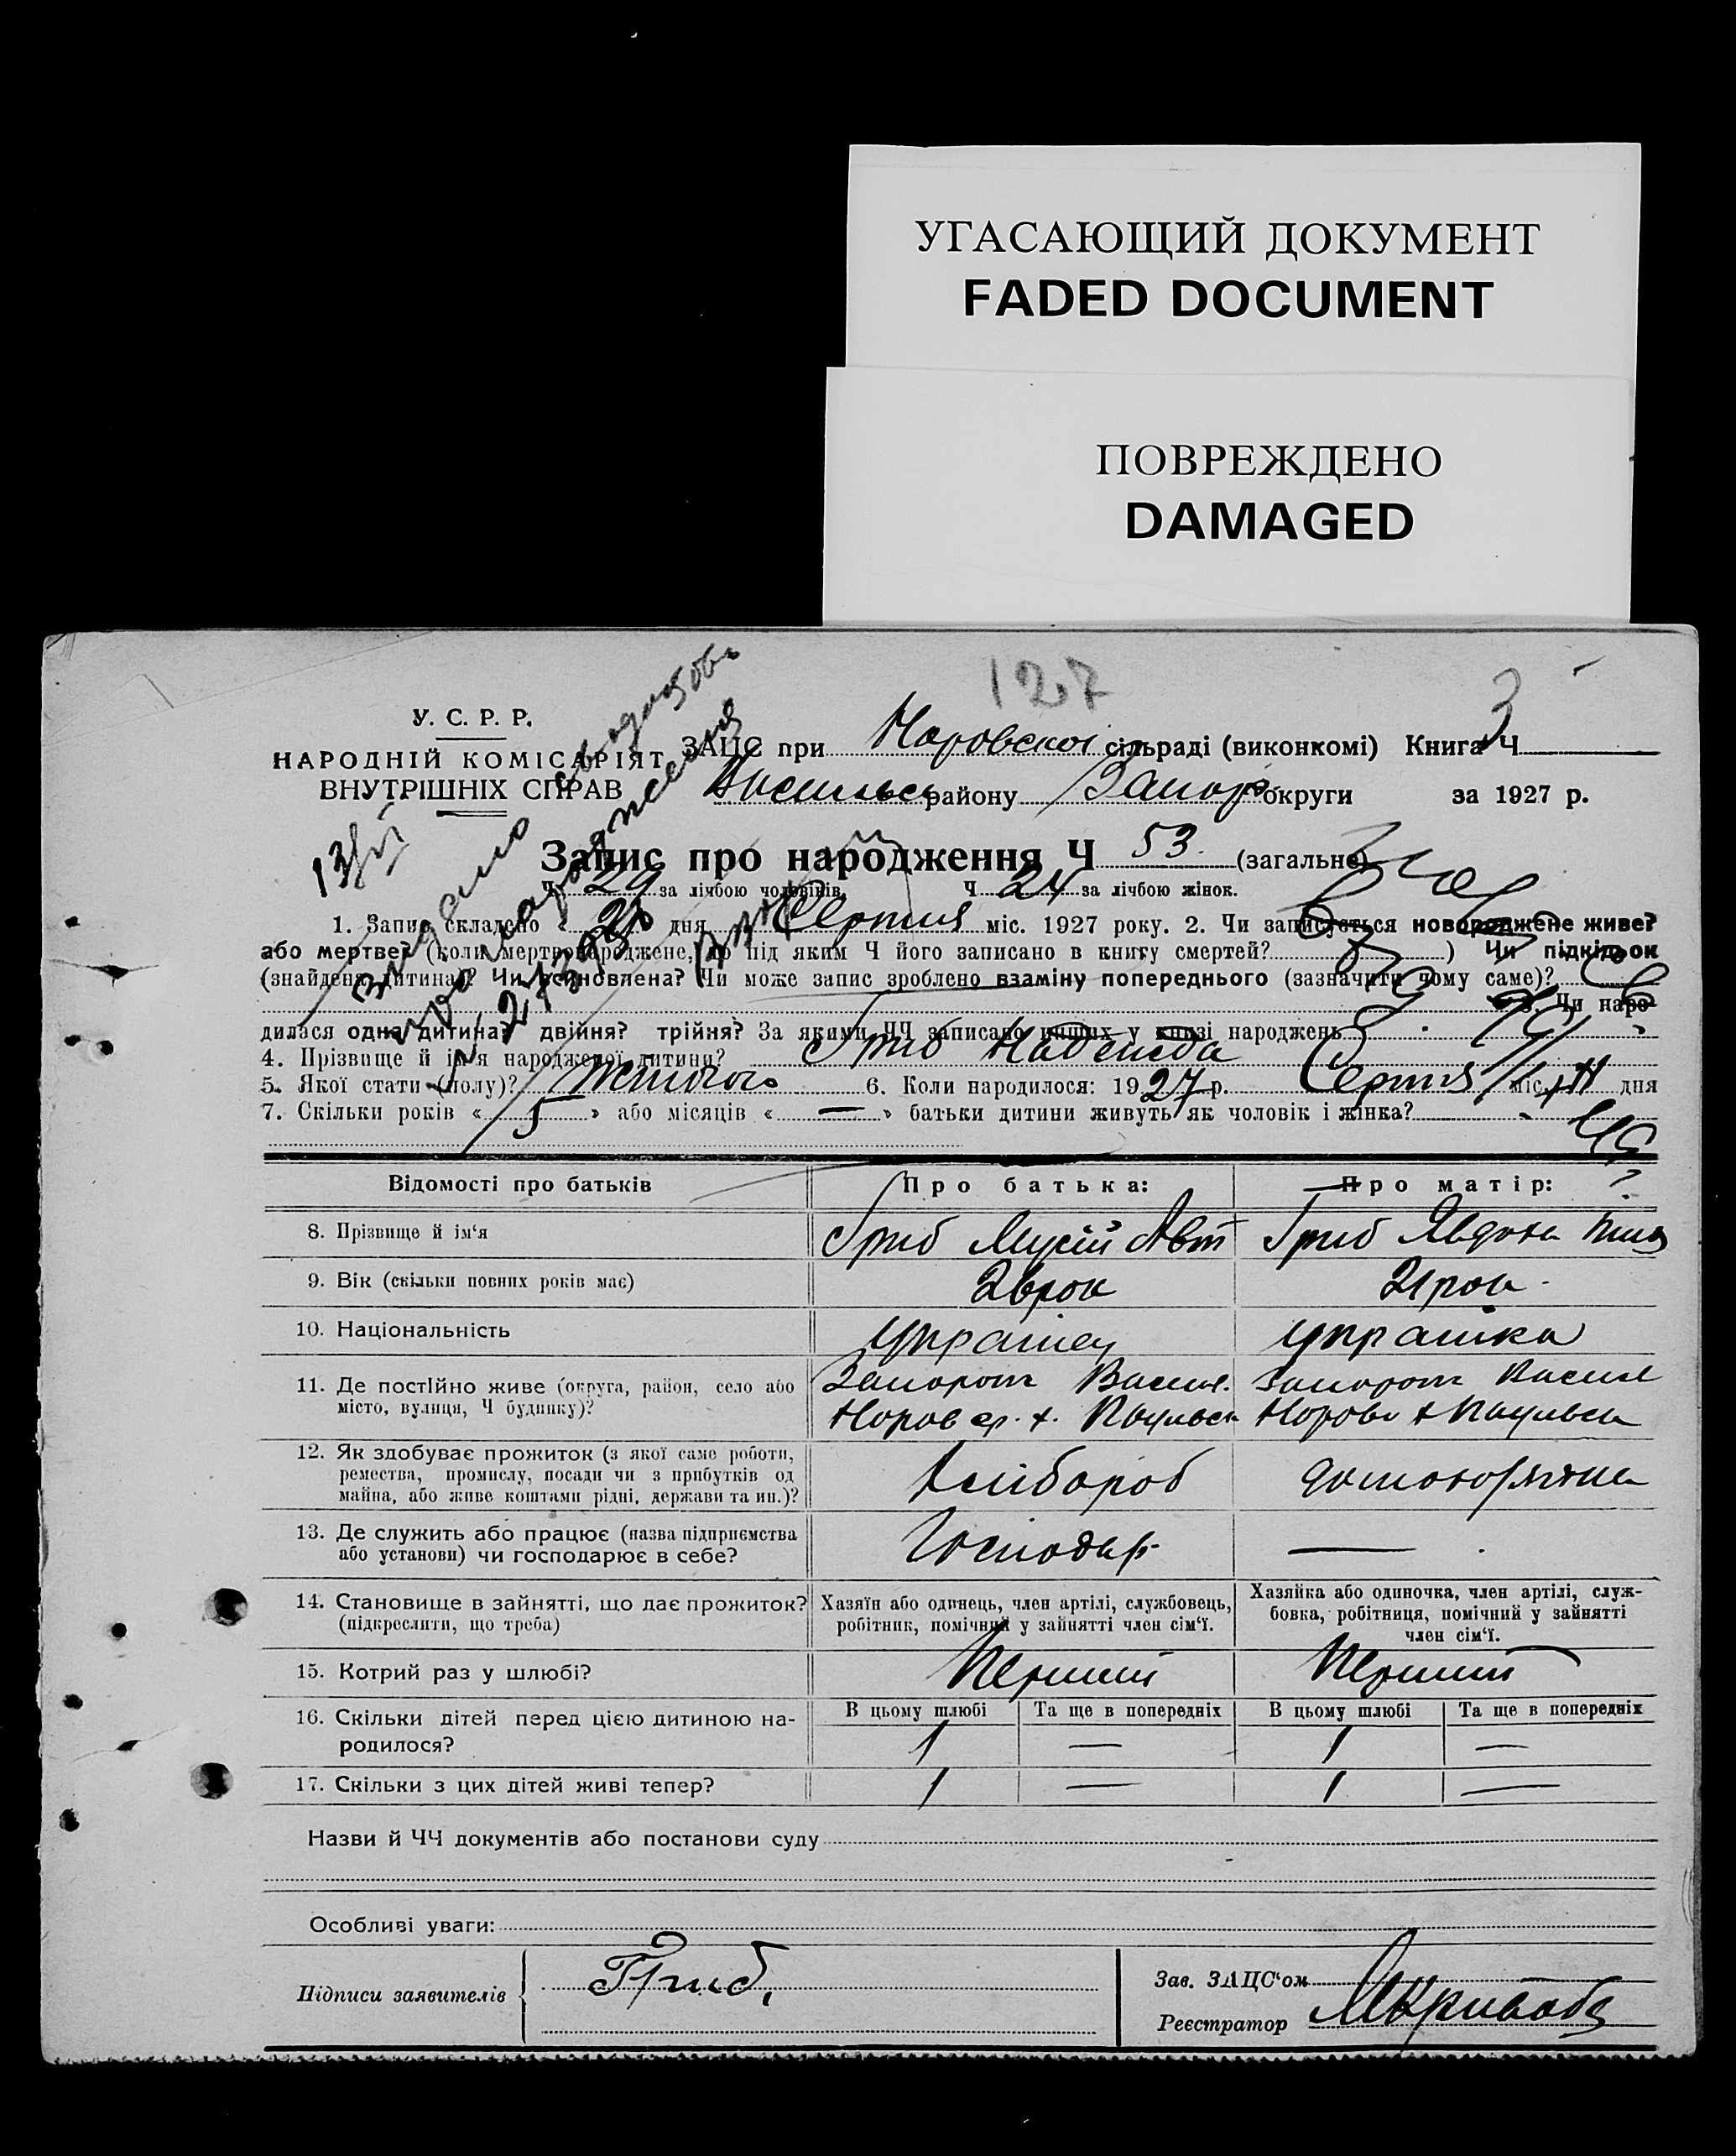 УГАСАЮЩИЙ ДОКУМЕНТ
FADED DOCUMENT
ПОВРЕЖДЕНО
DAMAGED
127
У. С. Р. Р.
НАРОДНІЙ КОМІСАРІЯТ
ВНУТРІШНІХ СПРАВ
ЗАЦС при сільраді (виконкомі) Книга Ч 3
району Запор округи за 1927 р.
Запис про народження Ч 53. (загальне)
Ч 29 за лічбою чоловіків, Ч 24 за лічбою жінок.
1. Запис складено « » дня Серпня міс. 1927 року. 2. Чи записується новороджене живе?
або мертве? (коли мертвонароджене, то під яким Ч його записано в книгу смертей? ) Чи підкідьок
(знайдена дитина)? Чи усиновлена? Чи може запис зроблено взаміну попереднього (зазначити чому саме)?
3. Чи наро-
дилася одна дитина? двійня? трійня? За якими ЧЧ записано инших у книзі народжень
4. Прізвище й ім'я народженої дитини? Гриб Надежда
5. Якої стати (полу)? жіночого 6. Коли народилося: 1927 р. Серпня міс. дня
7. Скільки років « 5 » або місяців « — » батьки дитини живуть як чоловік і жінка?
Відомості про батьків Про батька: Про матір:
8. Прізвище й ім'я Гриб Мусій Авт Гриб Явдоха
9. Вік (скільки повних років має) 26 рок 21 рок
10. Національність Українец Українка
11. Де постІйно живе (округа, район, село або
місто, вулиця, Ч будинку)?
12. Як здобуває прожиток (з якої саме роботи,
ремества, промислу, посади чи з прибутків од
майна, або живе коштами рідні, держави та ин.)?
Хлібороб
13. Де служить або працює (назва підприємства
або установи) чи господарює в себе?
Господар —
14. Становище в зайнятті, що дає прожиток?
(підкреслити, що треба)
Хазяїн або одинець, член артілі, службовець,
робітник, помічний у зайнятті член сім'ї.
Хазяйка або одиночка, член артілі, служ-
бовка, робітниця, помічний у зайнятті
член сім'ї.
15. Котрий раз у шлюбі? Перший Перший
16. Скільки дітей перед цією дитиною на-
родилося?
В цьому шлюбі Та ще в попередніх В цьому шлюбі Та ще в попередніх
1 — 1 —
17. Скільки з цих дітей живі тепер? 1 — 1 —
Назви й ЧЧ документів або постанови суду
Особливі уваги:
Підписи заявителів Гриб.
Зав. ЗАЦС'ом
Реєстратор